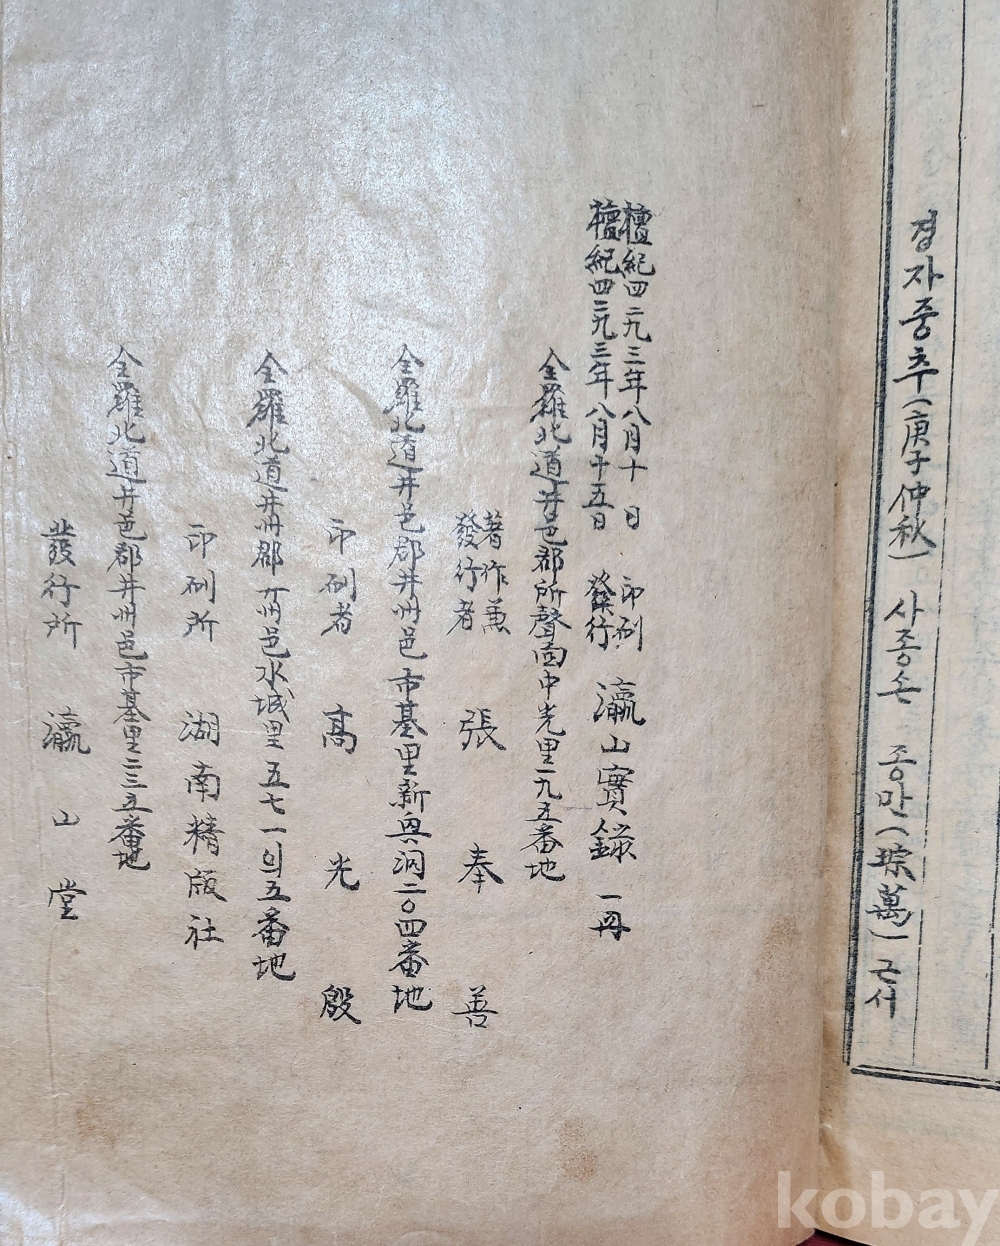 경자중추(庚子仲秋) 사종손 종만(琮萬) 근서
檀紀四二九三年八月十日 印刷
檀紀四二九三年八月十五日 發行
瀛山實錄 一冊
全羅北道井邑郡所聲面中光里一九五番地
著作兼
發行者 張奉善
全羅北道井邑郡井州邑市基里新興洞二〇四番地
印刷者 高光殷
全羅北道井州郡井州邑水城里五七一의五番地
印刷所 湖南精版社
全羅北道井邑郡井州邑市基里二三五番地
發行所 瀛山堂
kobay